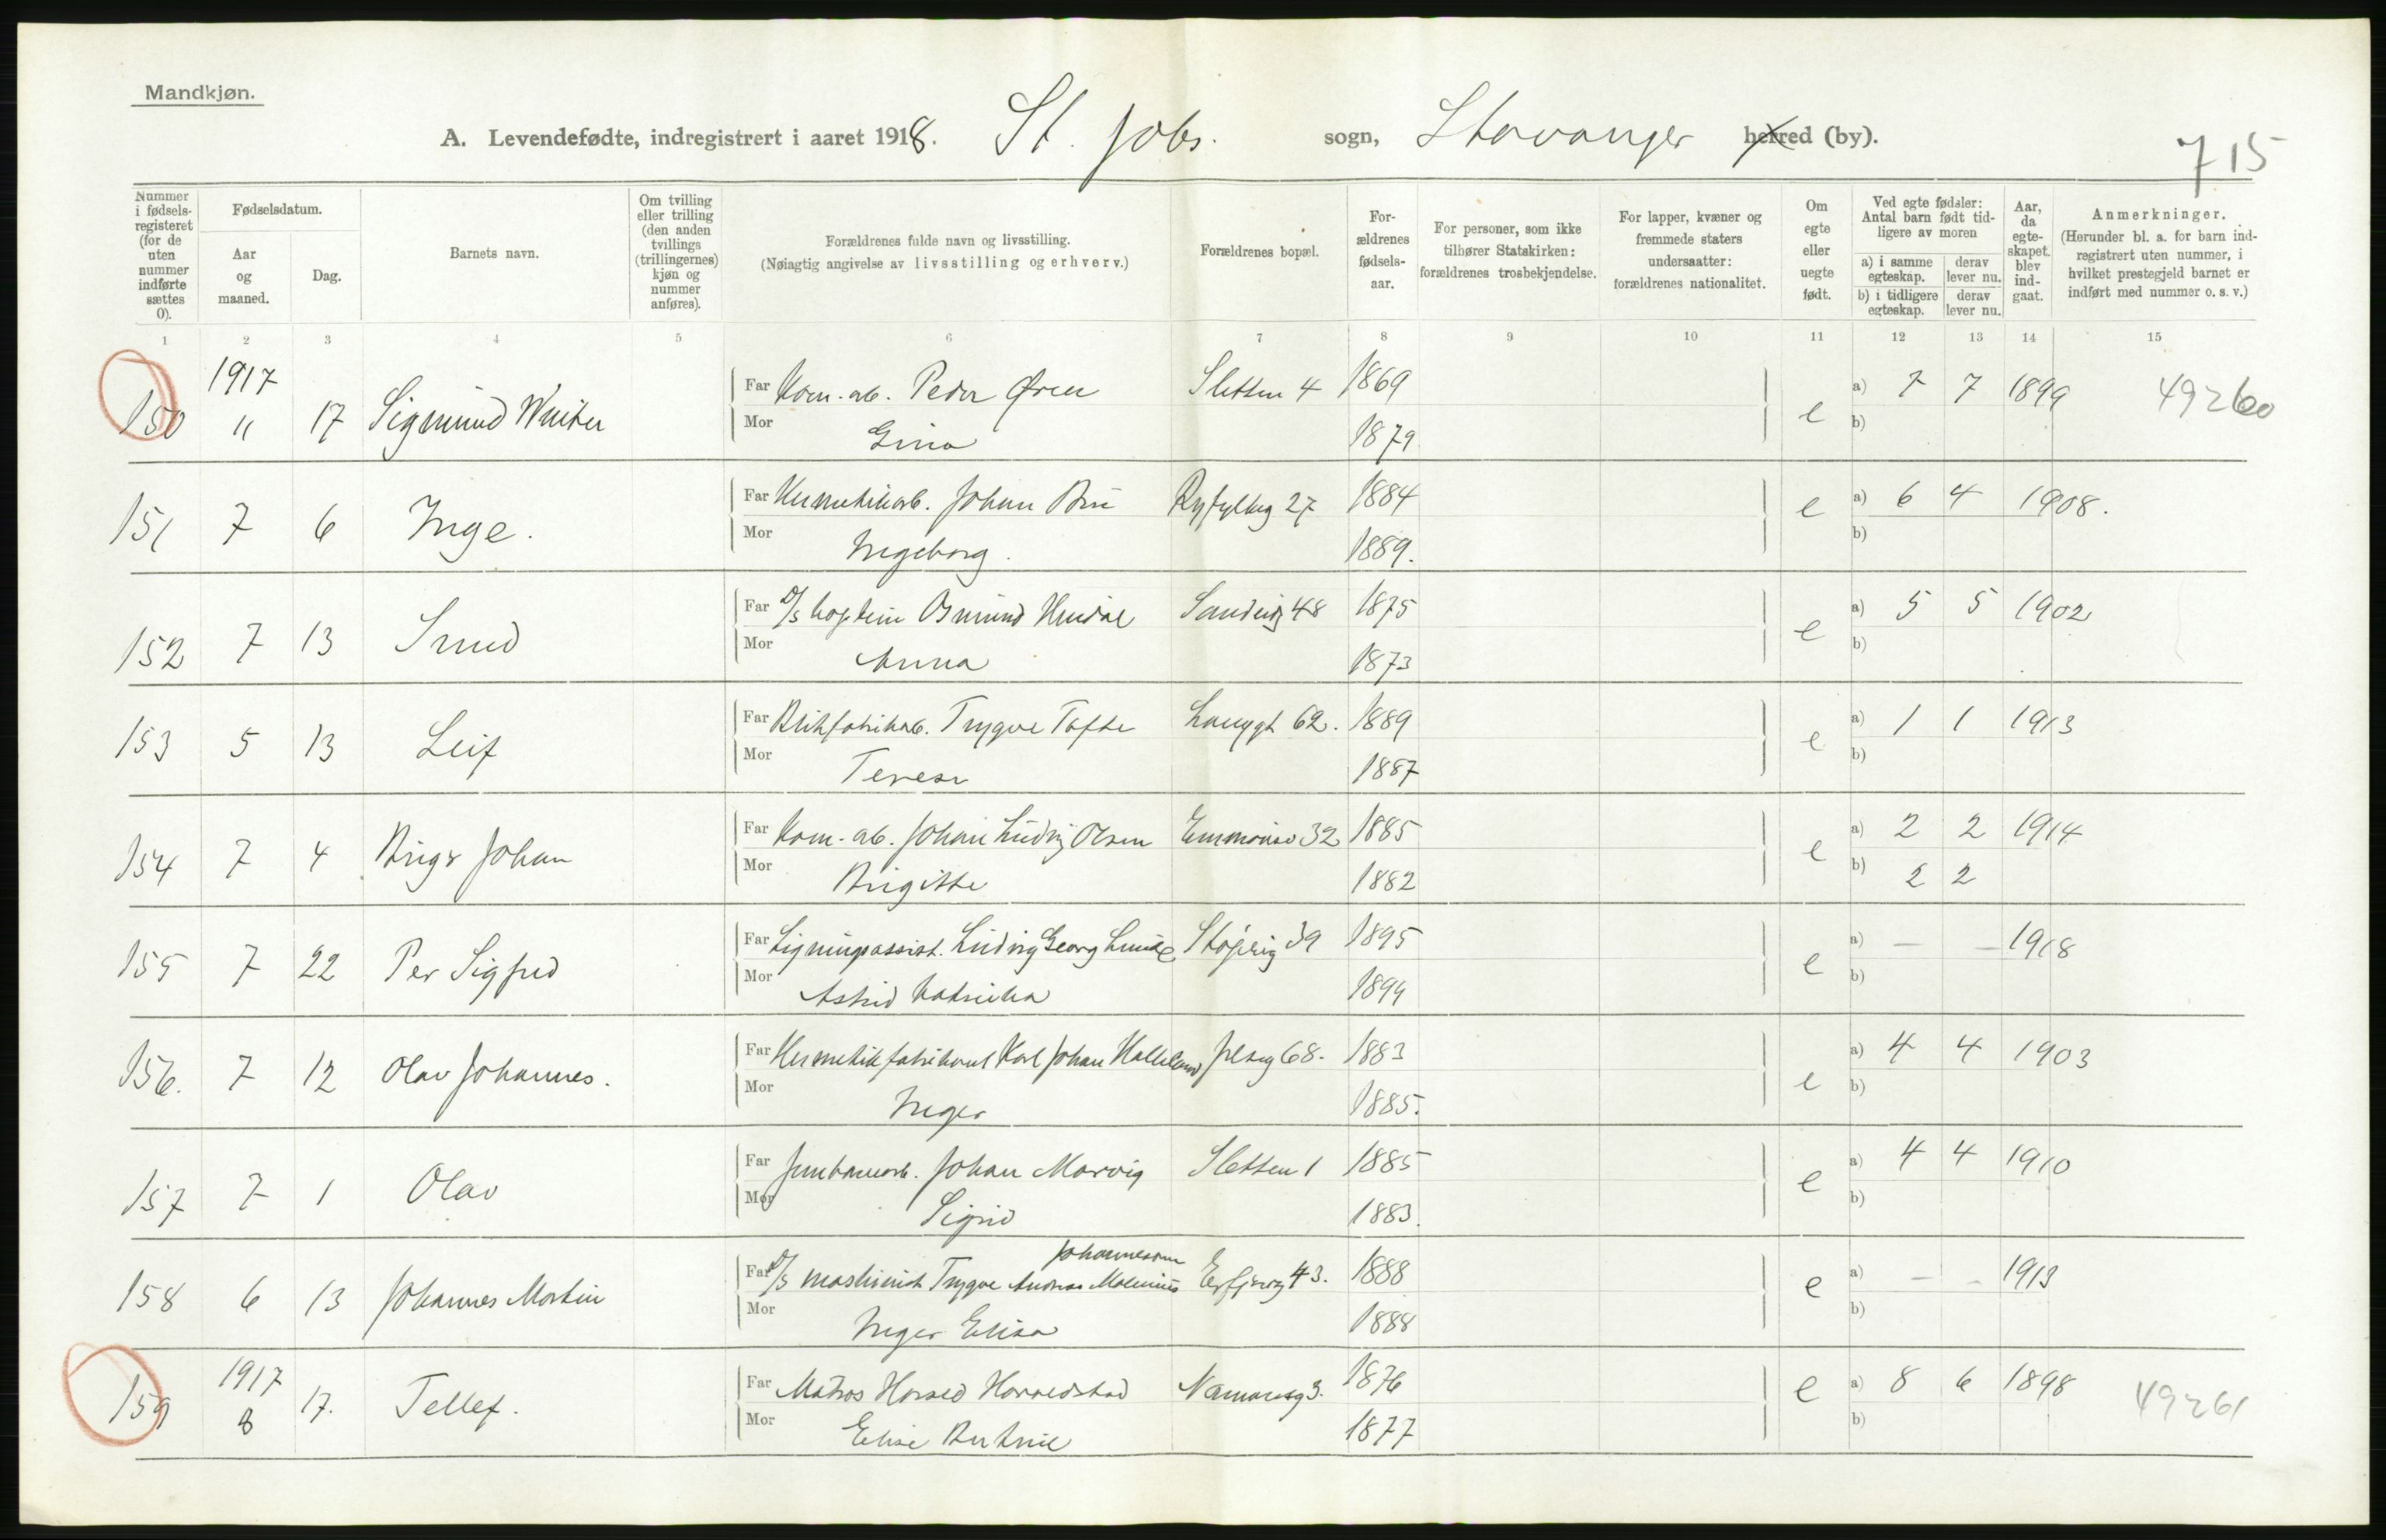 Mandkjøn.
A. Levendefødte, indregistrert i aaret 1918. St. Johs. sogn, Stavanger herred (by).
715
Nummer i fødsels-registeret (for de uten nummer indførte sættes 0).
Fødselsdatum.
Aar og maaned.
Dag.
Barnets navn.
Om tvilling eller trilling (den anden tvillings (trillingernes) kjøn og nummer anføres).
Forældrenes fulde navn og livsstilling.
(Nøiagtig angivelse av livsstilling og erhverv.)
Forældrenes bopæl.
For-ældrenes fødsels-aar.
For personer, som ikke tilhører Statskirken: forældrenes trosbekjendelse.
For lapper, kvæner og fremmede staters undersaatter: forældrenes nationalitet.
Om egte eller uegte født.
Ved egte fødsler: Antal barn født tid-ligere av moren
a) i samme egteskap. derav lever nu.
b) i tidligere egteskap. derav lever nu.
Aar, da egte-skapet blev ind-gaat.
Anmerkninger.
(Herunder bl. a. for barn ind-registrert uten nummer, i hvilket prestegjeld barnet er indført med nummer o. s. v.)
1 2 3 4 5 6 7 8 9 10 11 12 13 14 15
1917
150 11 17 Sigmund Far Kom. arb. Peder Sletten 4 1869 e a) 7 7 1899 49260
Mor Gina 1879 b)
151 7 6 Inge. Far Hermetikarb. Johan Ryfylkeg 27 1884 e a) 6 4 1908.
Mor Ingeborg. 1889. b)
152 7 13 Far D/S Kaptein Sandvig 48 1875 e a) 5 5 1902
Mor Anna 1873 b)
153 5 13 Leif Far Blikfabrikarb. Trygve Tofte Langgt 62. 1889 e a) 1 1 1913
Mor Terese 1887 b)
154 7 4 Birger Johan Far Kom. arb. Johan Ludvig Olsen 32 1885 e a) 2 2 1914
Mor Birgitte 1882 b) 2 2
155 7 22 Per Sigfred Far Ligningsassist. Ludvig Georg Lunde 39 1895 e a) — — 1918
Mor Astrid Katrine 1894 b)
156. 7 12 Olav Johannes. Far Hermetikfabrikant Karl Johan Halleland 68. 1883 e a) 4 4 1903
Mor Inger 1885. b)
157 7 1 Olav Far Jernbanearb. Johan Marvig Sletten 1 1885 e a) 4 4 1910
Mor Sigrid 1883. b)
Johannesen
158 6 13 Johannes Martin Far D/S maskinist Trygve Andreas 43. 1888 e a) — — 1913
Mor Inger Elisa 1888 b)
1917
159 8 17. Tellef. Far Matros Harald Haraldstad 3. 1876 e a) 8 6 1898 49261
Mor Elise 1877 b)